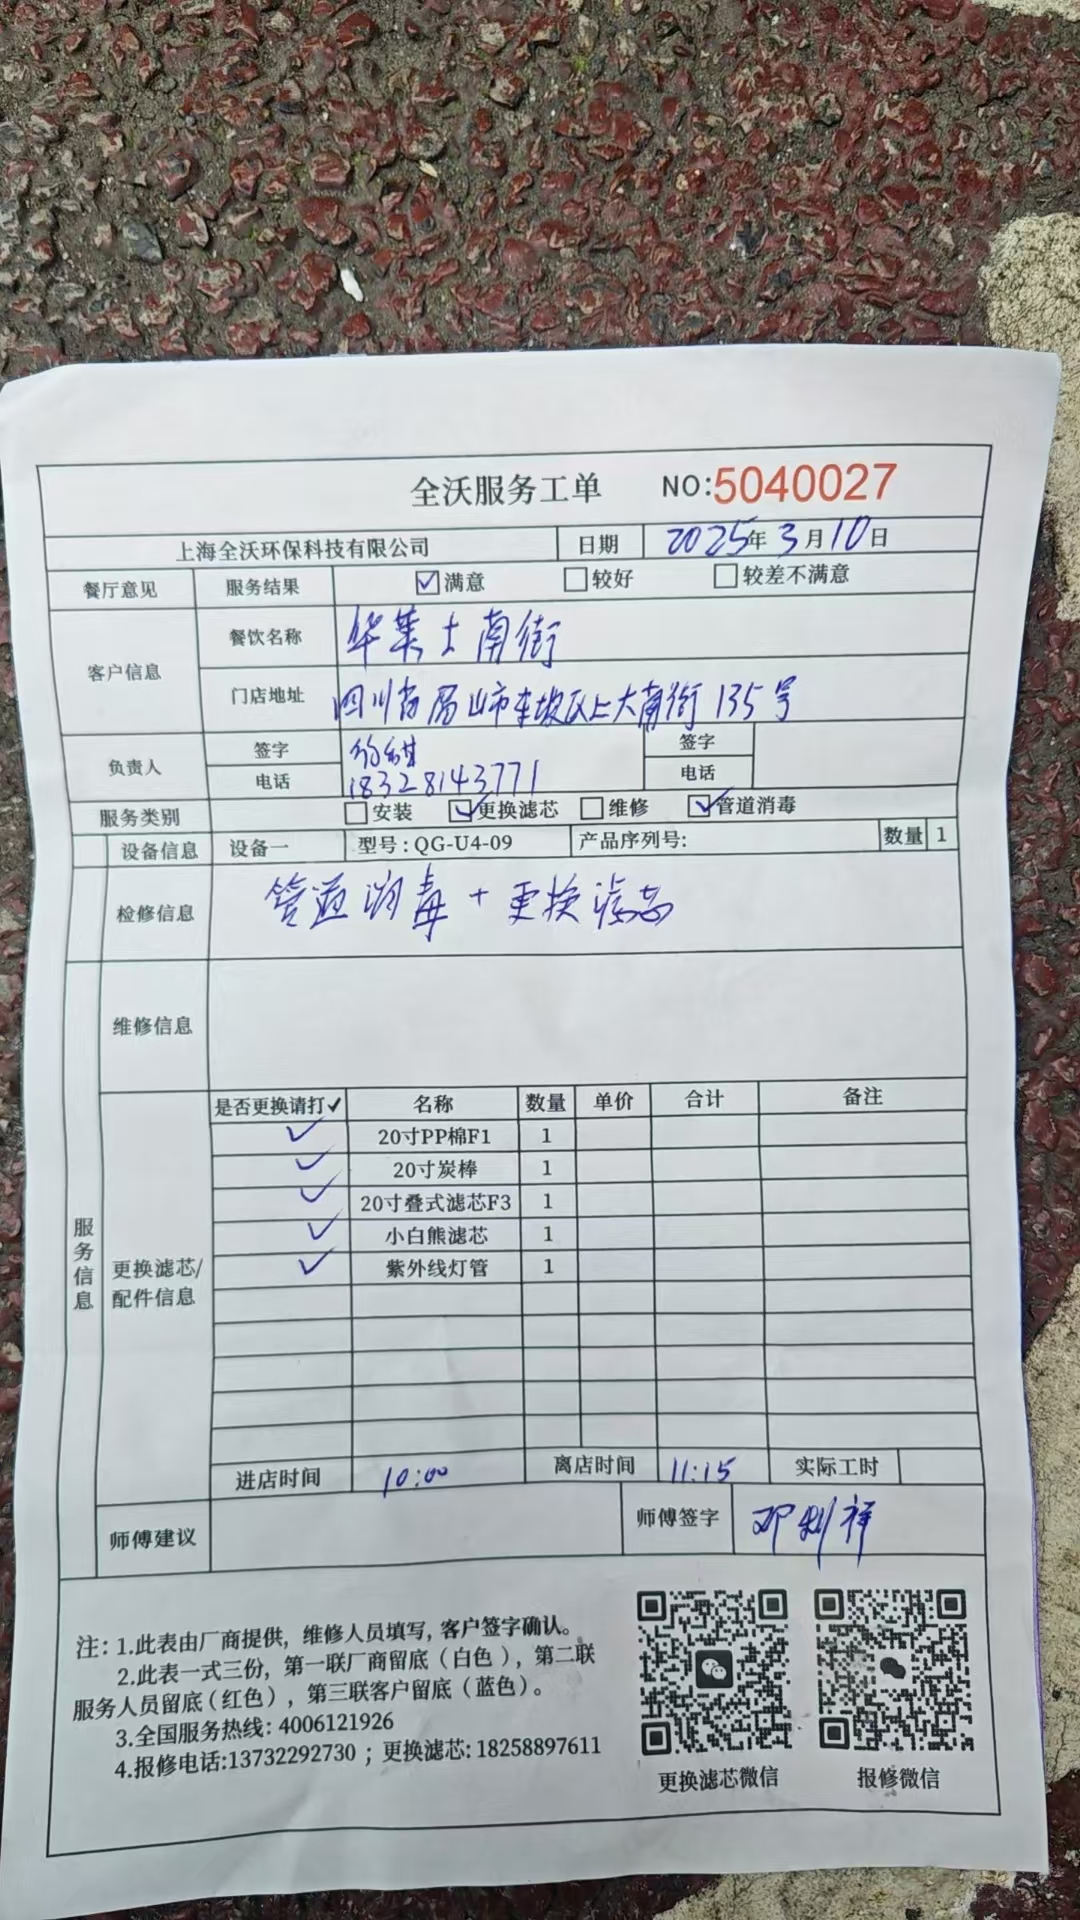 全沃服务工单 NO:5040027
上海全沃环保科技有限公司 日期 2025年3月10日
餐厅意见 服务结果 ☑满意 ☐较好 ☐较差不满意
客户信息 餐饮名称 华莱士南街
门店地址 四川省眉山市东坡区上大南街135号
负责人 签字 签字
电话 18328143771 电话
服务类别 ☐安装 ☑更换滤芯 ☐维修 ☑管道消毒
设备信息 设备一 型号:QG-U4-09 产品序列号: 数量 1
检修信息 管道消毒+更换滤芯
维修信息
服务信息
更换滤芯/配件信息
是否更换请打✓ 名称 数量 单价 合计 备注
✓ 20寸PP棉F1 1
✓ 20寸炭棒 1
✓ 20寸叠式滤芯F3 1
✓ 小白熊滤芯 1
✓ 紫外线灯管 1
进店时间 10:00 离店时间 11:15 实际工时
师傅建议 师傅签字 邓利祥
注:1.此表由厂商提供,维修人员填写,客户签字确认。
2.此表一式三份,第一联厂商留底(白色),第二联
服务人员留底(红色),第三联客户留底(蓝色)。
3.全国服务热线:4006121926
4.报修电话:13732292730;更换滤芯:18258897611
更换滤芯微信 报修微信